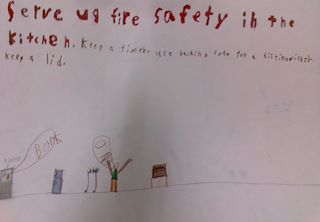 Serve up fire safety in the
kitchen. Keep a timer. use backing soda for a distinwisher
keep a lid.
Book